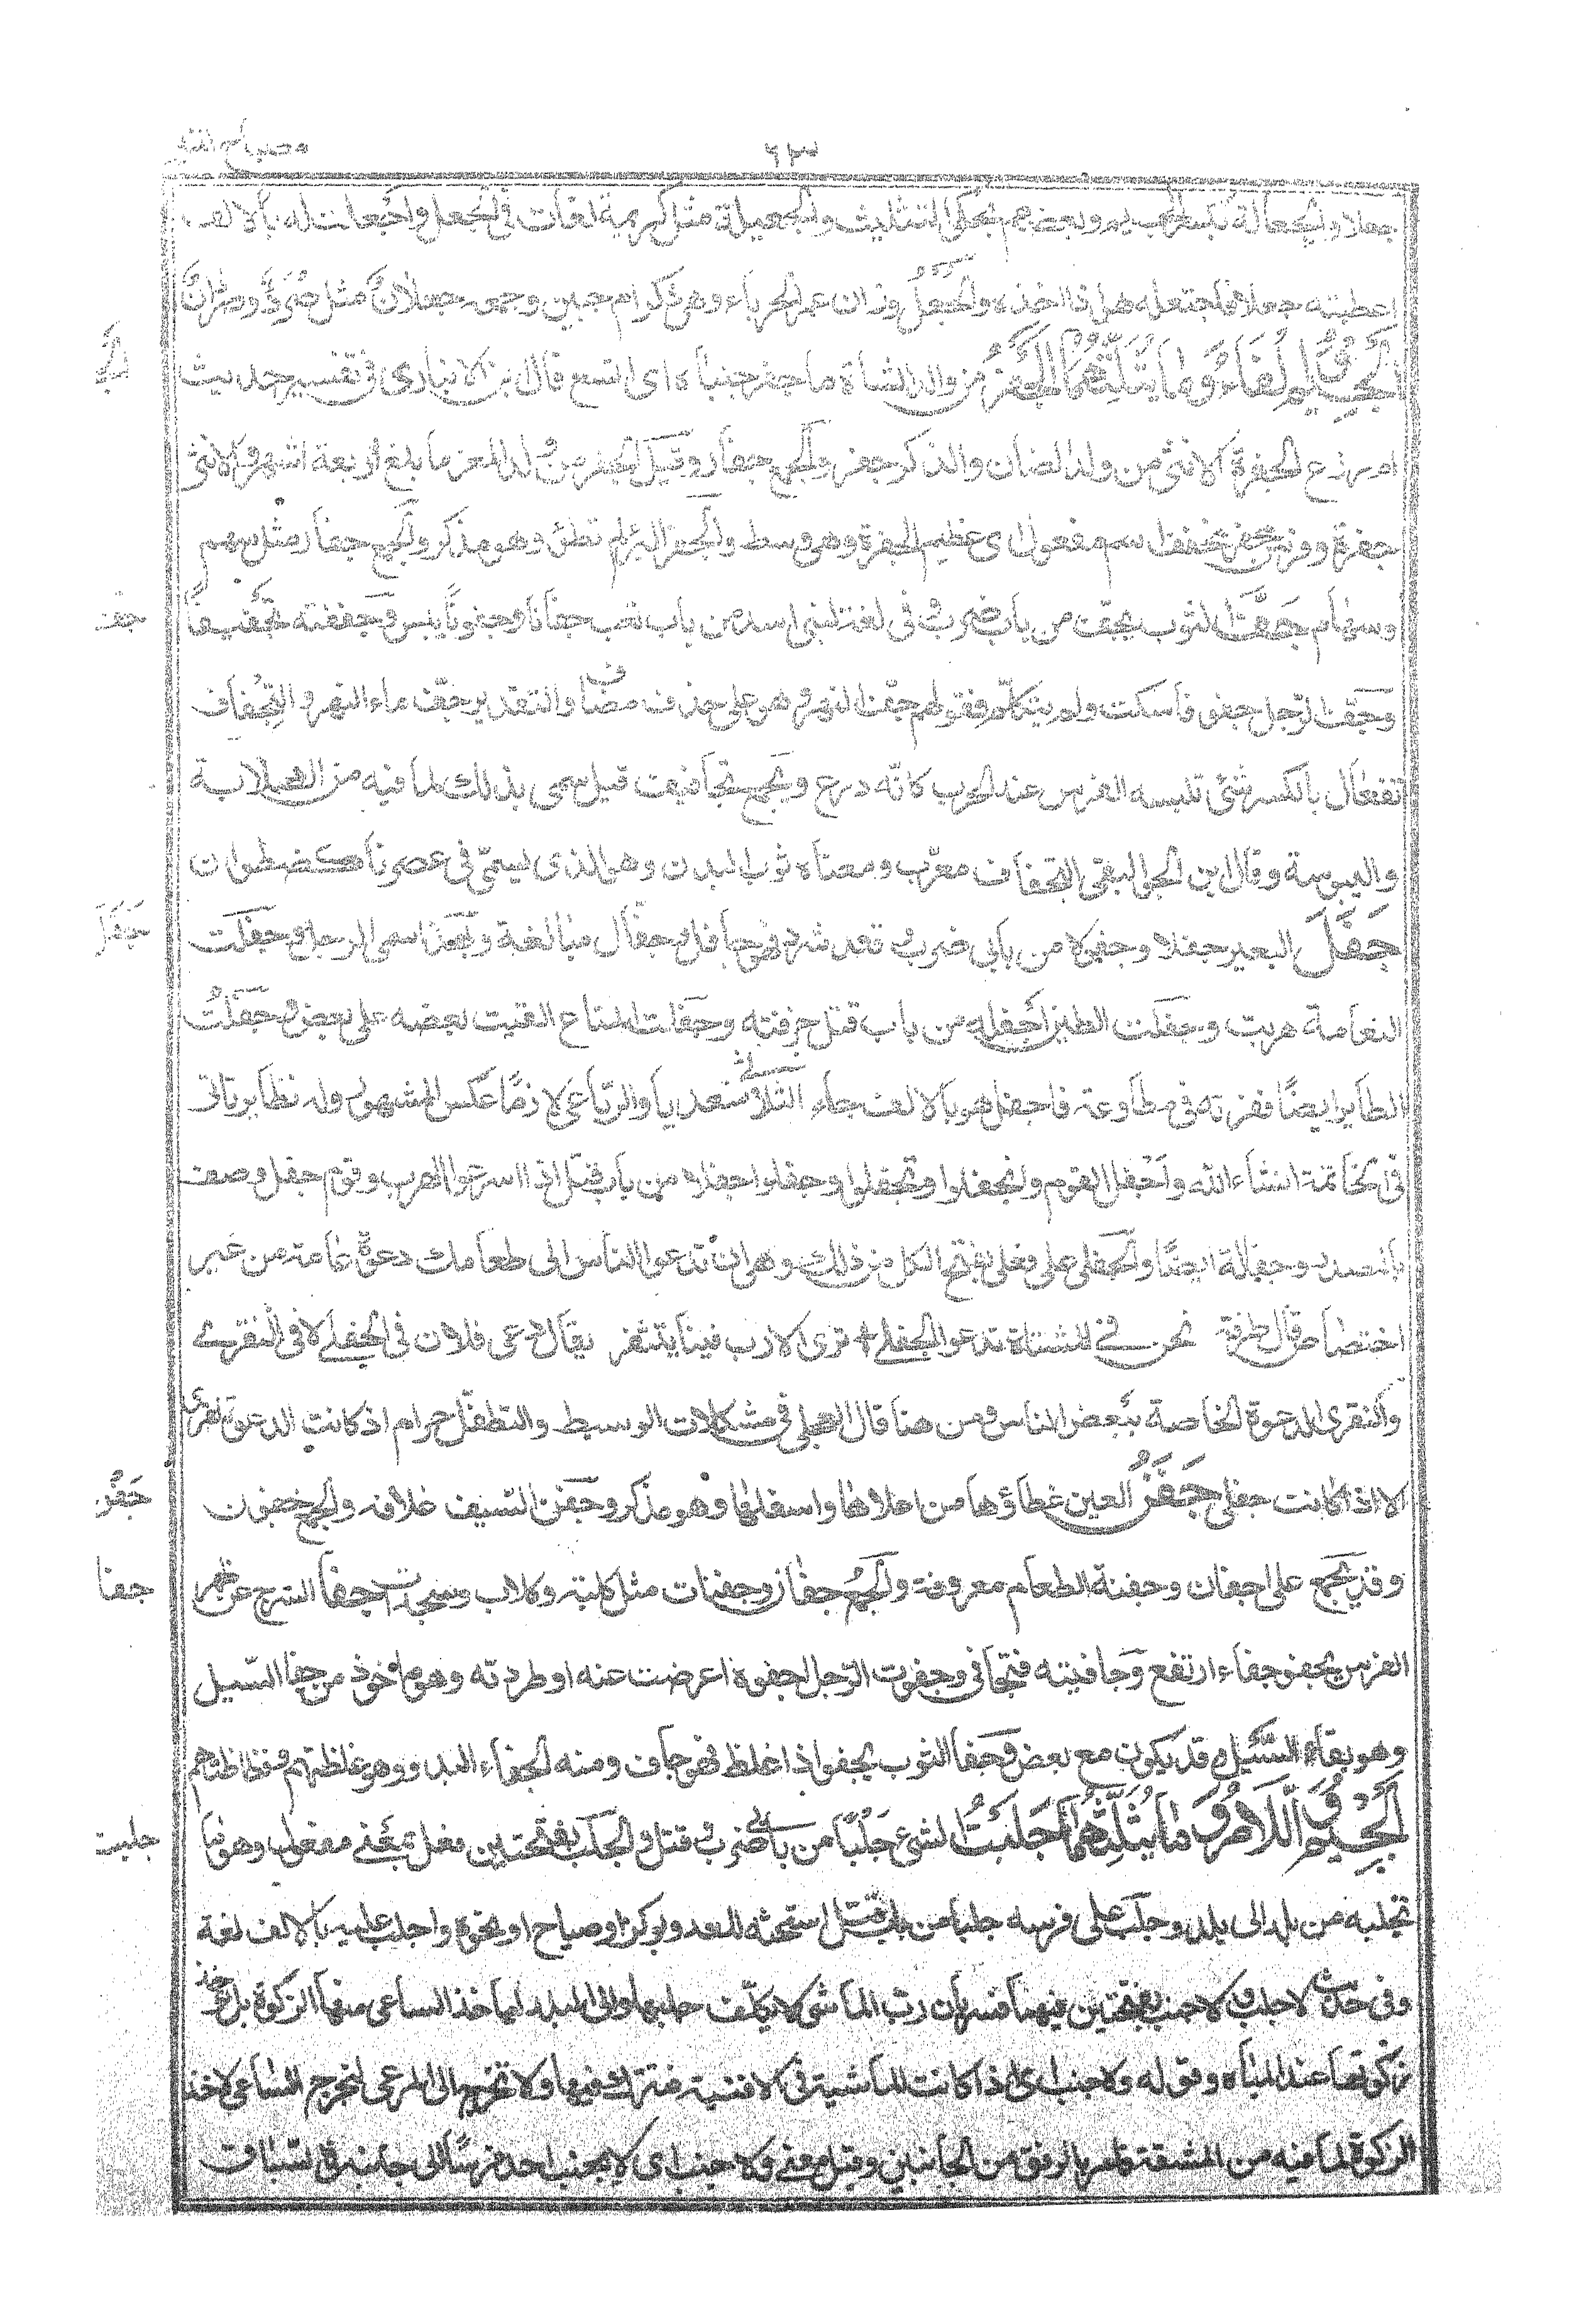 ٦٣
جعلا والجعالة بكسر الجيم وبعضهم يحكى التثليث والجعيلة مثل كريمة لغات فى الجعل واجعلت له بالالف
اعطيته جعلا فاجتعله هو اذا اخذه والجعل وزان عمر الحرباء وهى ذكر ام حبين وجمعه جعلان مثل صرد وصردان
الجيم والفاء وما يثلثهما الجفر من ولد الشاة ما جفر جنباه اى اتسع قال ابن الانبارى فى تفسير حديث
ام زرع الجفرة الانثى من ولد الضان والذكر جفر والجمع جفار وقيل الجفر من ولد المعز ما بلغ اربعة اشهر والانثى
جفرة وفرس مجفر مخفف اسم مفعول اى عظيم الجفرة وهى وسطه والجفر البئر لم تطو وهو مذكر والجمع جفار مثل سهم
وسهام جف الثوب يجف من باب ضرب وفى لغة لبنى اسد من باب تعب جفافا وجفوفا يبس وجففته تجفيفا
وجف الرجل جفوفا سكت ولم يتكلم فقولهم جف النهر هو على حذف مضاف والتقدير جف ماء النهر والتجفاف
تفعال بالكسر شئ تلبسه الفرس عند الحرب كانه درع والجمع تجافيف قيل سمى بذلك لما فيه من الصلابة
واليبوسة وقال ابن الجواليقى التجفاف معرب ومعناه ثوب البدن وهو الذى يسمى فى عصرنا
جفل البعير جفلا وجفولا من بابى ضرب وقعد شرد فهو جافل وجفال مبالغة وبهذا سمى الرجل وجفلت
النعامة هربت وجفلت الطين اجفله من باب قتل جرفته وجفلت المتاع القيت بعضه على بعض وجفلت
الطاير ايضا نفرته وفى مطاوعه فاجفل هو بالالف جاء الثلاثى متعديا والرباعى لازما عكس المشهور وله نظاير تاتى
فى الخاتمة ان شاء الله واجفل القوم وانجفلوا وتجفلوا وجفلوا جفلا من باب قتل اذا اسرعوا الهرب وقوم جفل وصف
بالمصدر وجفالة ايضا والجفلى على فعلى بفتح الكل من ذلك وهى ان تدعو الناس الى طعامك دعوة عامة من غير
اختصاص قال طرفة نحن فى المشتاة ندعو الجفلى + ترى الادب فينا ينتقر يقال دعى فلان فى الجفلى لا فى النقرى
والنقرى الدعوة الخاصة ببعض الناس ومن هنا قال العجلى فى مشكلات الوسيط والتطفل حرام اذا كانت الدعوة نقرى
لا اذا كانت جفلى جفن العين غطاؤها من اعلاها واسفلها وهو مذكر وجفن السيف غلافه والجمع جفون
وقد يجمع على اجفان وجفنة الطعام معروفة والجمع جفان وجفنات مثل كلبة وكلاب وسجدات جفا السرج عن ظهر
الفرس يجفو جفاء ارتفع وجافيته فتجافى وجفوت الرجل اجفوه اعرضت عنه او طردته وهو ماخوذ من جفاء السيل
وهو ما نفاه السيل وقد يكون مع بعض وجفا الثوب يجفو اذا غلظ فهو جاف ومنه الجفاء البدو وهو غلظتهم وفظاظتهم
الجيم واللام وما يثلثهما جلبت الشئ جلبا من بابى ضرب وقتل والجلب بفتحتين فعل بمعنى مفعول وهو ما
تجلبه من بلد الى بلد وجلب على فرسه جلبا من باب قتل استحثه للعدو بوكز او صياح او نحوه واجلب عليه بالالف لغة
وفى حديث لا جلب ولا جنب بفتحتين فيهما فسر بان رب الماشية لا يكلف جلبها الى البلد لياخذ الساعى منها الزكوة بل تؤخذ
زكوتها عند المياه وقوله ولا جنب اى اذا كانت الماشية فى الافنية فتترك فيها ولا تخرج الى المرعى ليخرج الساعى لاخذ
الزكوة لما فيه من المشقة فامر بالرفق من الجانبين وقيل معنى ولا جنب اى لا يجنب احد فرسا الى جانبه فى السباق
جف
جفل
جفن
جفا
جلبت